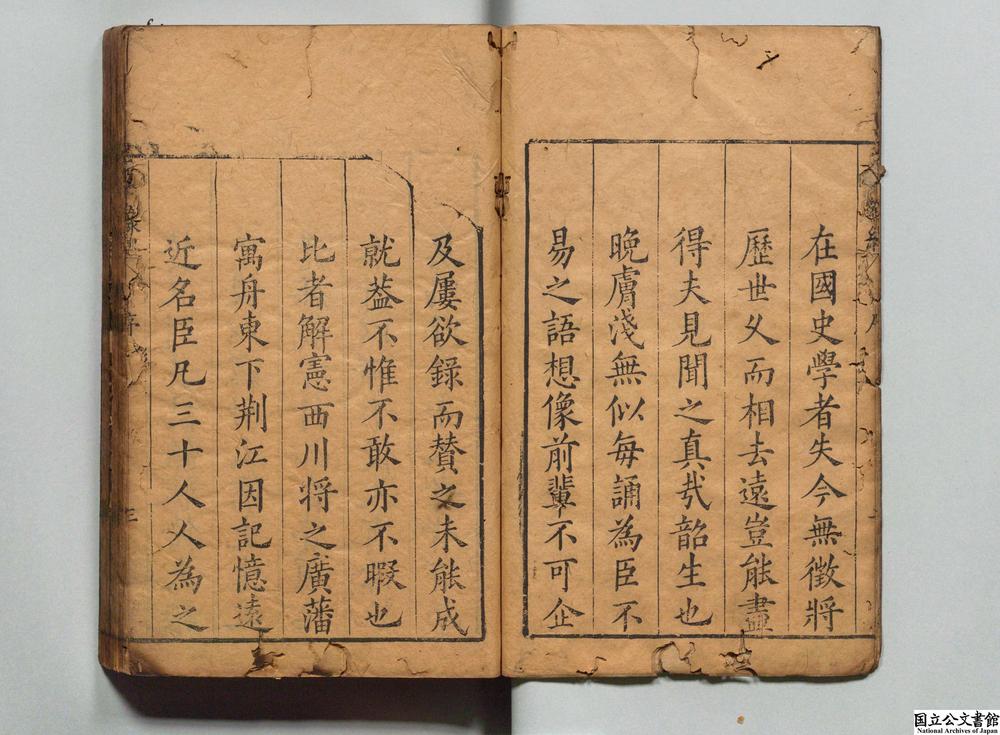 在國史學者失今無徵將
歷世乆而相去遠豈能盡
得夫見聞之真㢤韶生也
晚膚淺無似每誦為臣不
易之語想像前輩不可企
及屢欲錄而賛之未能成
就葢不惟不敢亦不暇也
比者解憲西川將之廣藩
寓舟東下荆江因記憶遠
近名臣凡三十人人為之
国立公文書館
National Archives of Japan